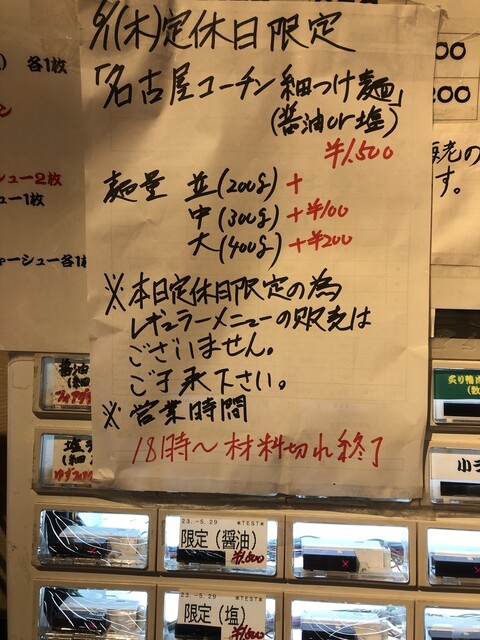 6/1(木)定休日限定
「名古屋コーチン細つけ麺」
(醤油or塩)
¥1,500
麺量 並(200g)+
中(300g)+¥100
大(400g)+¥200
※本日定休日限定の為
レギュラーメニューの販売は
ございません。
ご了承下さい。
※営業時間
18時〜材料切れ終了
各1枚
シュー2枚
ュー1枚
ャーシュー各1
00
200
す。
醤油
塩
23.-5.29 *TEST*
限定(醤油)
23.-5.29 *TEST*
限定(塩)